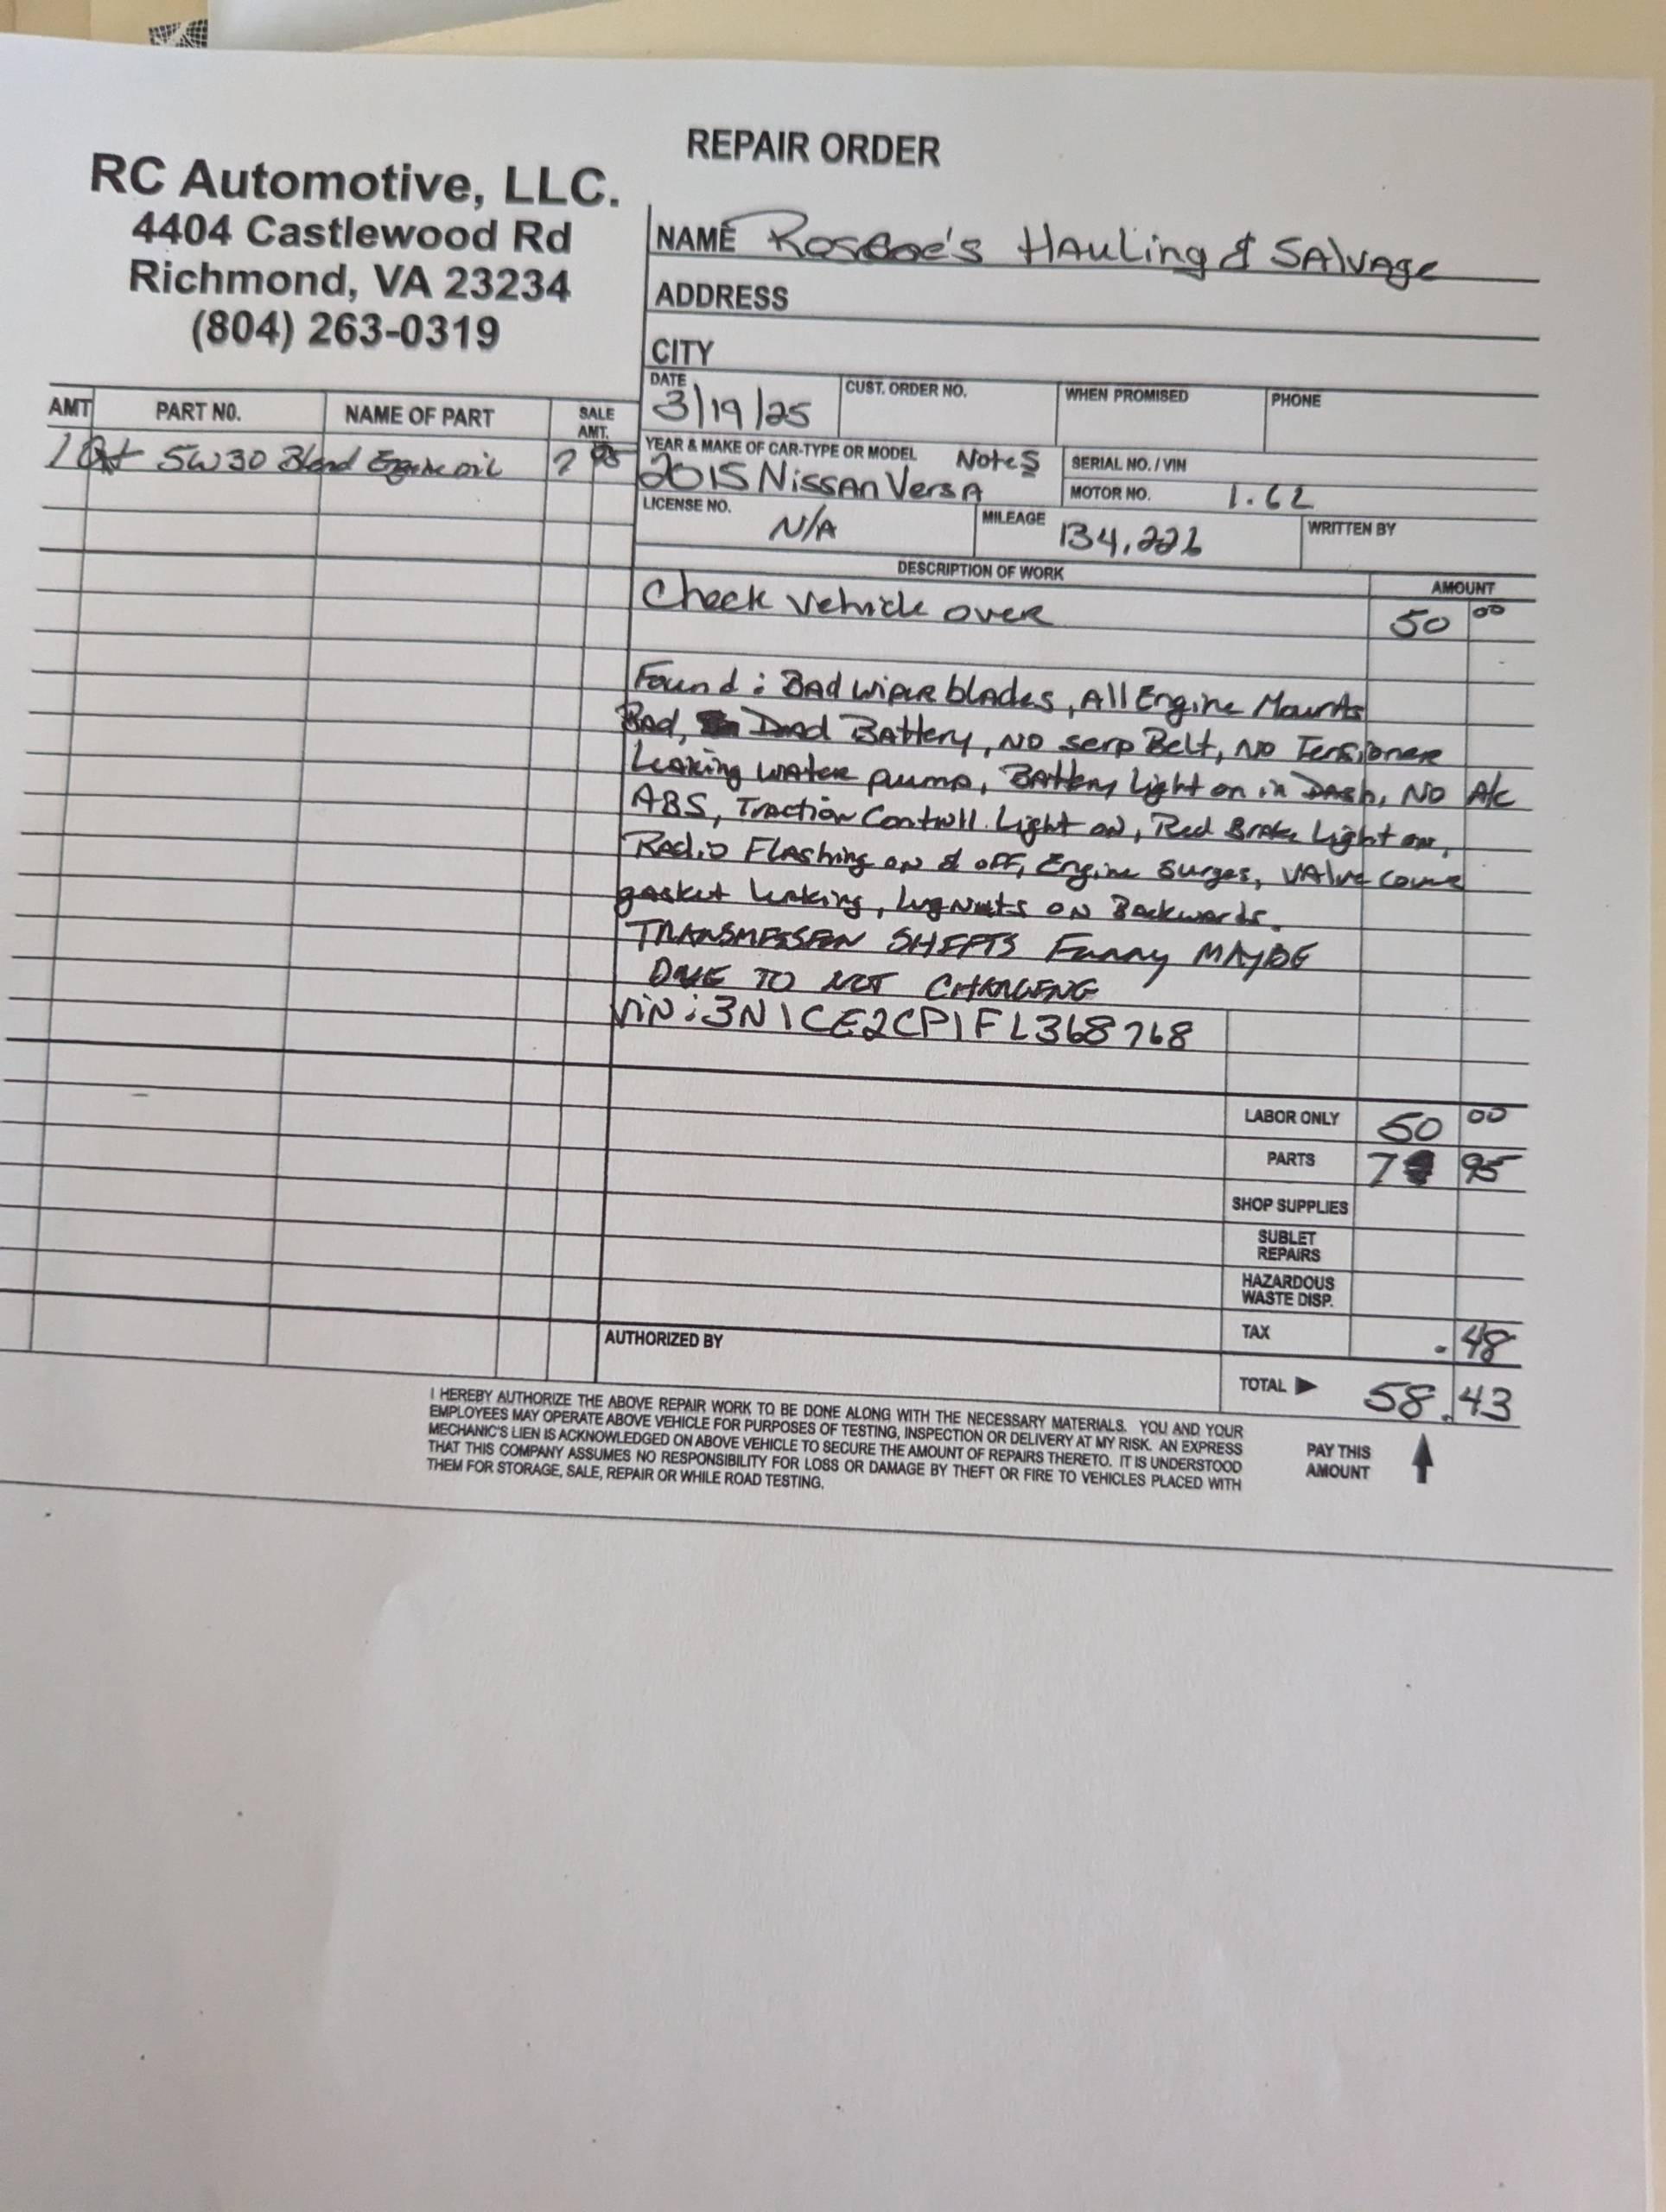 REPAIR ORDER
RC Automotive, LLC.
4404 Castlewood Rd
Richmond, VA 23234
(804) 263-0319
NAME Roscoe's Hauling & Salvage
ADDRESS
CITY
DATE CUST. ORDER NO. WHEN PROMISED PHONE
3/19/25
AMT PART NO. NAME OF PART SALE AMT.
1 Qt 5W30 Blend Engine oil 7 95
YEAR & MAKE OF CAR-TYPE OR MODEL Notes SERIAL NO. / VIN
2015 Nissan Versa MOTOR NO. 1.6L
LICENSE NO. N/A MILEAGE 134,226 WRITTEN BY
DESCRIPTION OF WORK AMOUNT
Check vehicle over 50 00
Found : Bad wiper blades, All Engine Mounts
Bad, Dead Battery, NO serp Belt, NO Tensioner
Leaking water pump, Battery Light on in Dash, NO A/c
ABS, Traction Controll Light on, Red Brake Light on,
Radio Flashing on & off, Engine Surges, Valve cover
gasket leaking, lugnuts on Backwards.
TRANSMISSION SHIFTS Funny MAYBE
DUE TO NOT CHARGING
ViN : 3N1CE2CP1FL368768
LABOR ONLY 50 00
PARTS 7 95
SHOP SUPPLIES
SUBLET REPAIRS
HAZARDOUS WASTE DISP.
TAX .48
AUTHORIZED BY
TOTAL ▶ 58.43
I HEREBY AUTHORIZE THE ABOVE REPAIR WORK TO BE DONE ALONG WITH THE NECESSARY MATERIALS. YOU AND YOUR
EMPLOYEES MAY OPERATE ABOVE VEHICLE FOR PURPOSES OF TESTING, INSPECTION OR DELIVERY AT MY RISK. AN EXPRESS
MECHANIC'S LIEN IS ACKNOWLEDGED ON ABOVE VEHICLE TO SECURE THE AMOUNT OF REPAIRS THERETO. IT IS UNDERSTOOD
THAT THIS COMPANY ASSUMES NO RESPONSIBILITY FOR LOSS OR DAMAGE BY THEFT OR FIRE TO VEHICLES PLACED WITH
THEM FOR STORAGE, SALE, REPAIR OR WHILE ROAD TESTING.
PAY THIS
AMOUNT